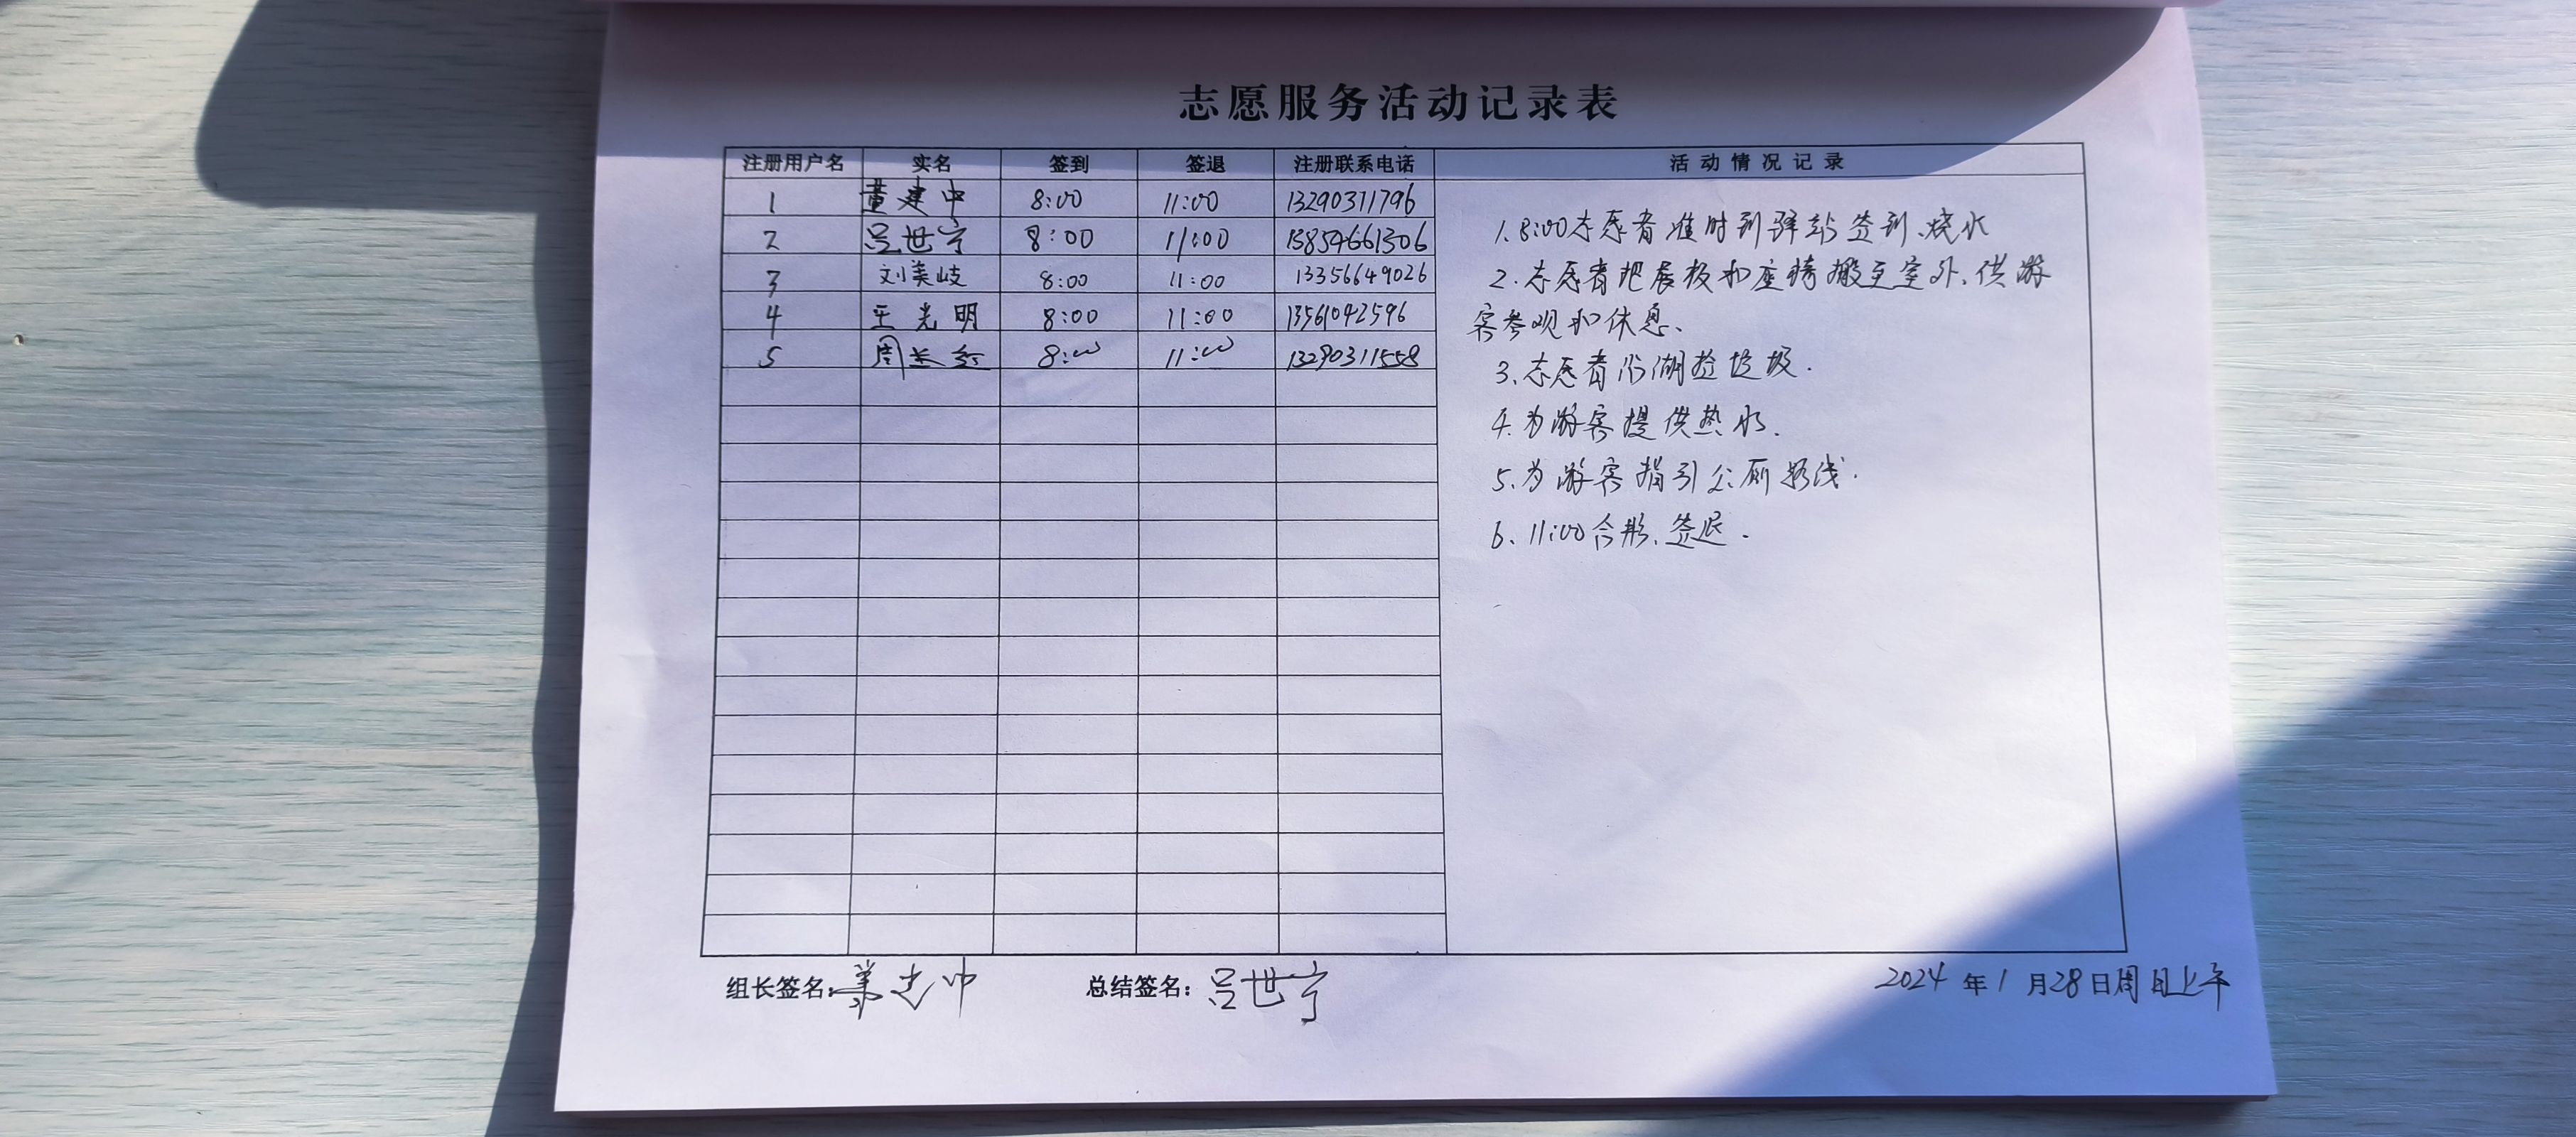 志愿服务活动记录表
注册用户名 实名 签到 签退 注册联系电话 活动情况记录
1 董建中 8:00 11:00 13290311796
2 吕世宁 8:00 11:00 13854661306
3 刘美岐 8:00 11:00 13356649026
4 王光明 8:00 11:00 13561042596
5 周长红 8:00 11:00 13290311558
1.8:00志愿者准时到驿站签到、烧水
2.志愿者把展板和座椅搬至室外、供游
客参观和休息、
3、志愿者沿湖捡垃圾.
4.为游客提供热水.
5、为游客指引公厕路线.
6、11:00合影、签退.
组长签名: 董建中 总结签名: 吕世宁 2024年1月28日周日上午